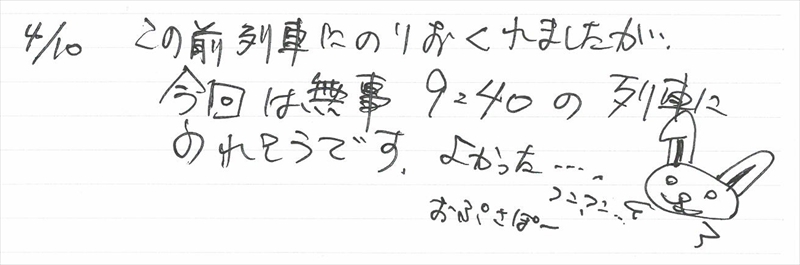 4/10 この前列車にのりおくれましたが、
今回は無事9:40の列車に
のれそうです。よかった....
おぷさぽー